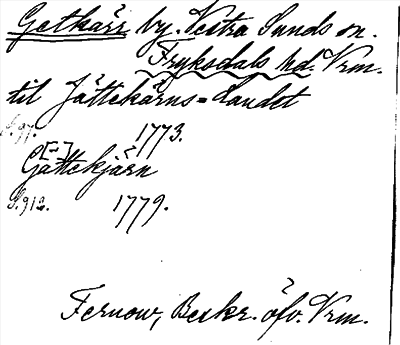 Getkäri by. Vestra Sunds sn.
Fryksdals hd. Vrm.
til Jättekärns=Landet
S. 97. 1773.
[~]
Gattekjärn
S. 912. 1779.
Fernow, Beskr. öfv. Vrm.